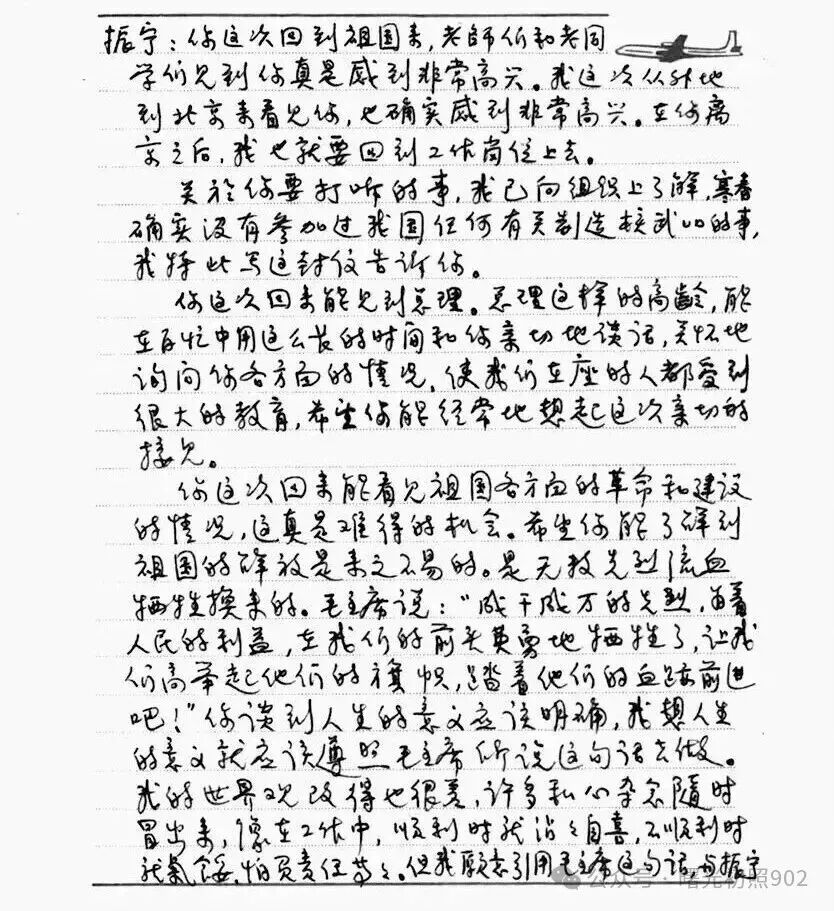 振宁：你这次回到祖国来，老師们和老同
学们见到你真是感到非常高兴。我这次从外地
到北京来看见你，也确实感到非常高兴。在你离
京之后，我也就要回到工作岗位上去。
关於你要打听的事，我已向组织上了解，寒春
确实没有参加过我国任何有关制造核武口的事，
我特此写这封信告诉你。
你这次回来能见到总理。总理这样的高龄，能
在百忙中用这么长的时间和你亲切地谈话，关怀地
询问你各方面的情况，使我们在座的人都受到
很大的教育，希望你能经常地想起这次亲切的
接见。
你这次回来能看见祖国各方面的革命和建设
的情况，这真是难得的机会。希望你能了解到
祖国的解放是来之不易的。是无数先烈流血
牺牲换来的。毛主席说：“成千成万的先烈，为着
人民的利益，在我们的前头英勇地牺牲了，让我
们高举起他们的旗帜，踏着他们的血迹前进
吧！”你谈到人生的意义应该明确，我想人生
的意义就应该遵照毛主席所说这句话去做。
我的世界观改得也很差，许多私心杂念随时
冒出来，像在工作中，顺利时就沾々自喜，不顺利时
就氣馁，怕负责任等々。但我愿意引用毛主席这句话，与振宁
公众号·曙光初照902